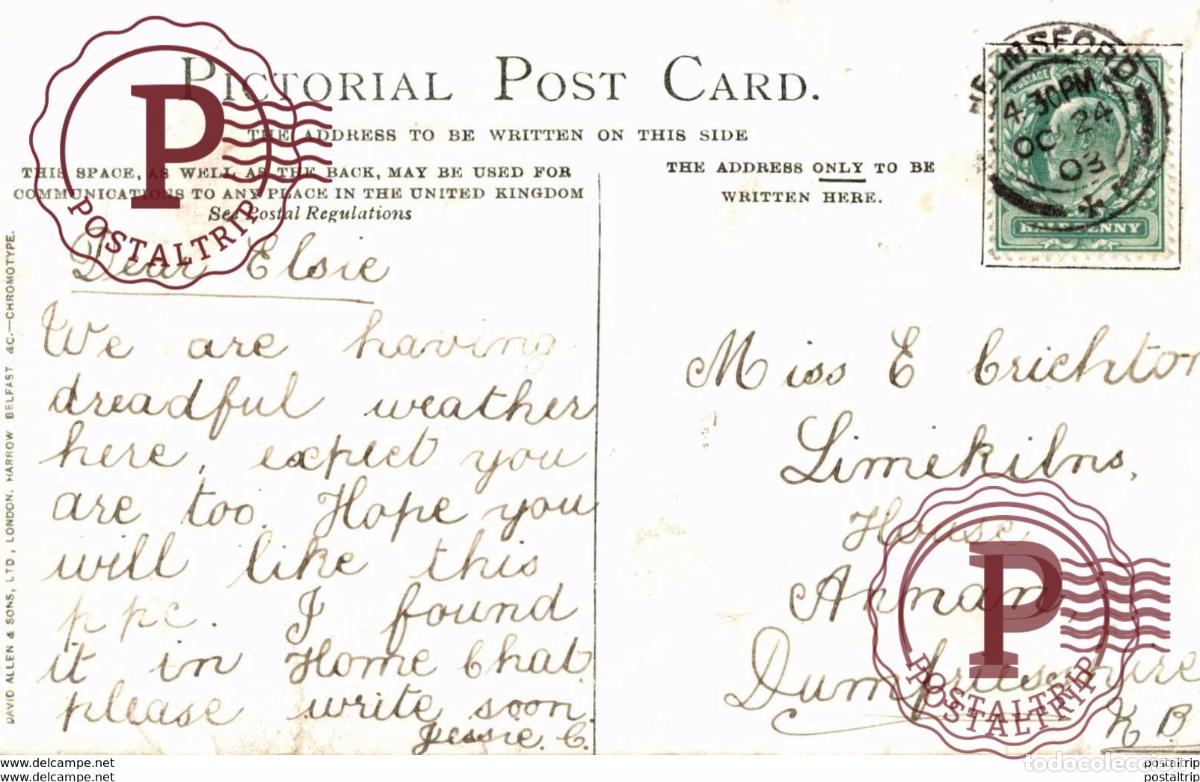 PICTORIAL POST CARD.
THE ADDRESS TO BE WRITTEN ON THIS SIDE
THIS SPACE, AS WELL AS THE BACK, MAY BE USED FOR
COMMUNICATIONS TO ANY PLACE IN THE UNITED KINGDOM
See Postal Regulations
THE ADDRESS ONLY TO BE
WRITTEN HERE.
POSTAGE
HALFPENNY
CHELMSFORD
4.30PM
OC 24
03
P
POSTALTRIP
DAVID ALLEN & SONS, LTD, LONDON. HARROW BELFAST &C.—CHROMOTYPE.
Dear Elsie
We are having
dreadful weather
here, expect you
are too. Hope you
will like this
ppc. I found
it in Home Chat.
please write soon.
Jessie. C.
Miss E Crichton
Limekilns,
House
Annan,
Dumfriesshire
N.B
P
POSTALTRIP
POSTALTRIP
todocoleccion
www.delcampe.net
postaltrip
www.delcampe.net
postaltrip